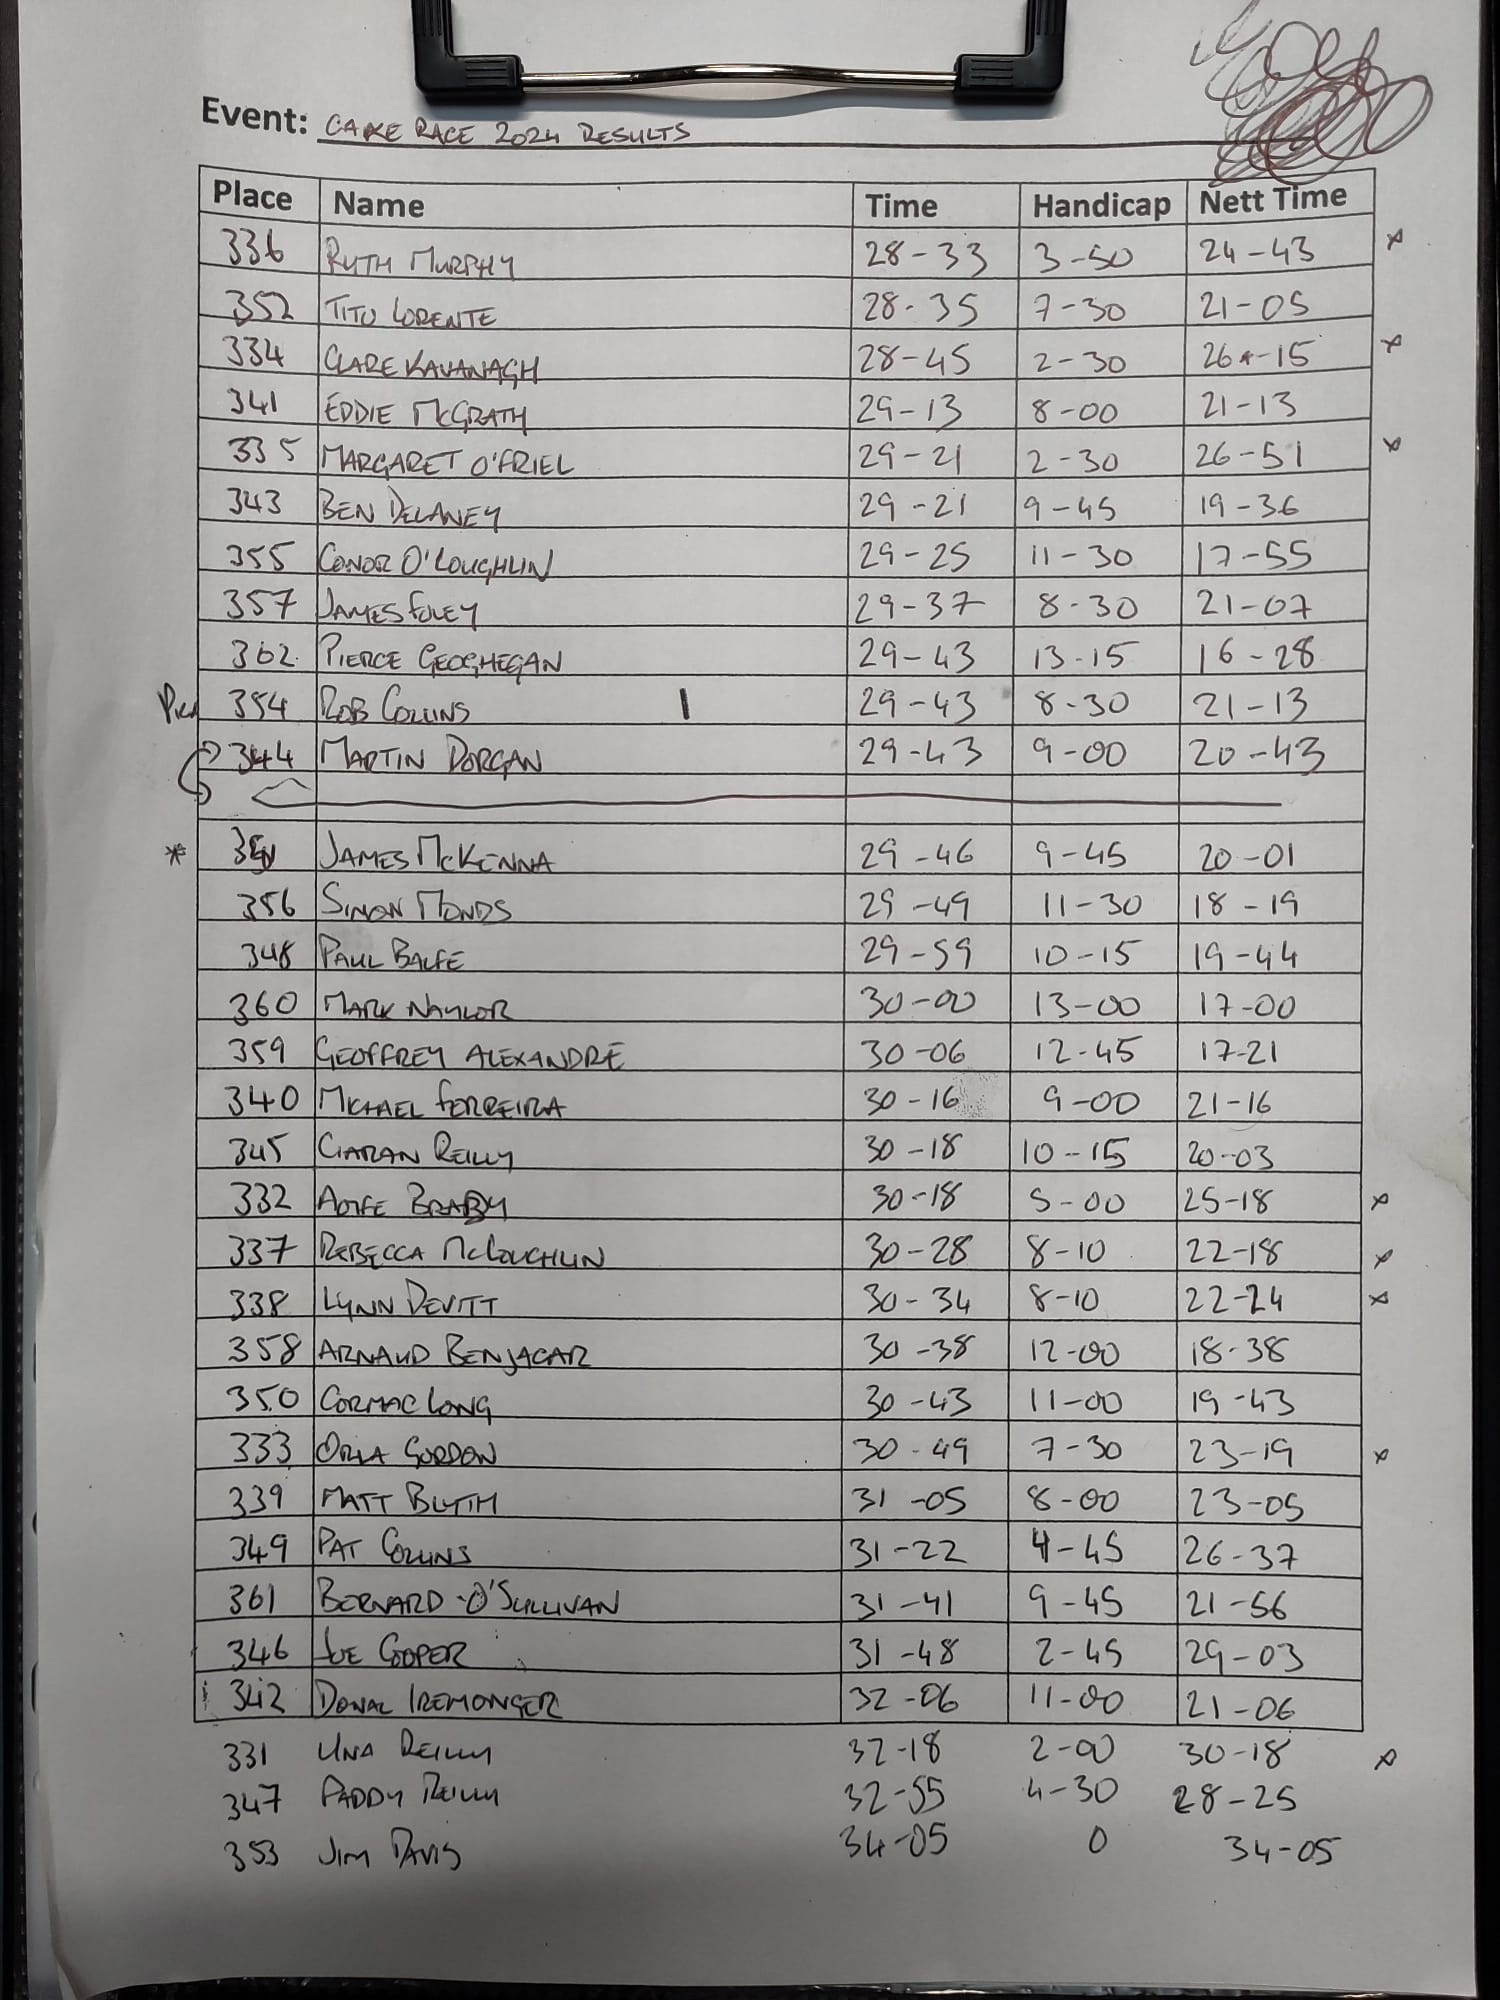 Event: CAKE RACE 2024 RESULTS
Place Name Time Handicap Nett Time
336 RUTH MURPHY 28-33 3-50 24-43 x
352 TITO LORENTE 28-35 7-30 21-05
334 CLARE KAVANAGH 28-45 2-30 26-15 x
341 EDDIE McGRATH 29-13 8-00 21-13
335 MARGARET O'FRIEL 29-21 2-30 26-51 x
343 BEN DELANEY 29-21 9-45 19-36
355 CONOR O'LOUGHLIN 29-25 11-30 17-55
357 JAMES FOLEY 29-37 8-30 21-07
362 PIERCE GEOGHEGAN 29-43 13-15 16-28
354 ROB COLLINS 29-43 8-30 21-13
344 MARTIN DORGAN 29-43 9-00 20-43
* JAMES McKENNA 29-46 9-45 20-01
356 SIMON MONDS 29-49 11-30 18-19
348 PAUL BALFE 29-59 10-15 19-44
360 MARK NAYLOR 30-00 13-00 17-00
359 GEOFFREY ALEXANDRE 30-06 12-45 17-21
340 MICHAEL FERREIRA 30-16 9-00 21-16
345 CIARAN REILLY 30-18 10-15 20-03
332 AOIFE BRADY 30-18 5-00 25-18 x
337 REBECCA McLOUGHLIN 30-28 8-10 22-18 x
338 LYNN DEVITT 30-34 8-10 22-24 x
358 ARNAUD BENJACAR 30-38 12-00 18-38
350 CORMAC LONG 30-43 11-00 19-43
333 ORLA GORDON 30-49 7-30 23-19 x
339 MATT BLYTH 31-05 8-00 23-05
349 PAT COLLINS 31-22 4-45 26-37
361 BERNARD O'SULLIVAN 31-41 9-45 21-56
346 JOE COOPER 31-48 2-45 29-03
342 DONAL IREMONGER 32-06 11-00 21-06
331 UNA REILLY 32-18 2-00 30-18 x
347 PADDY REILLY 32-55 4-30 28-25
353 JIM DAVIS 34-05 0 34-05